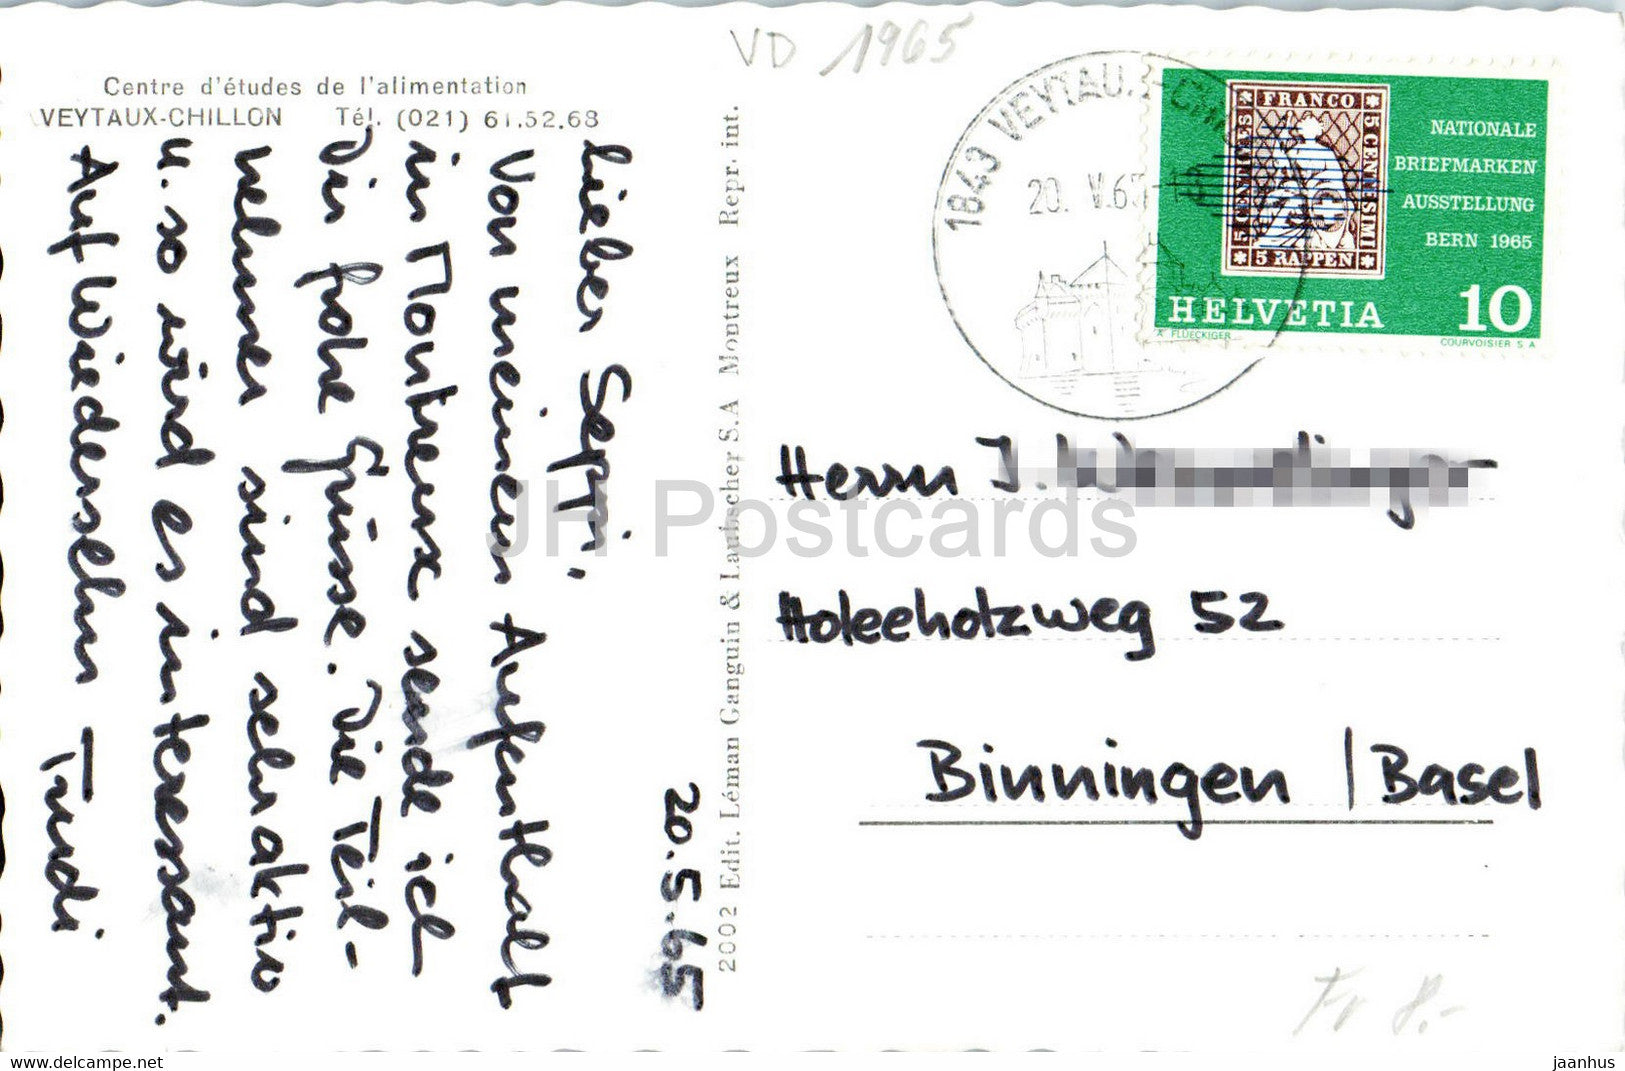 VD 1965
Centre d'études de l'alimentation
VEYTAUX-CHILLON Tél. (021) 61.52.68
20.5.65
Lieber Seppi,
Von meinem Aufenthalt
in Montreux sende ich
Dir frohe Grüsse. Die Teil-
nehmer sind sehr aktiv
u. so wird es interessant.
Auf Wiedersehn Trudi
2002 Edit. Léman Ganguin & Laubscher S.A Montreux Repr. int.
1843 VEYTAUX-CHI
20. V.65
FRANCO
5 CENTIMES
5 CENTESIMI
5 RAPPEN
NATIONALE
BRIEFMARKEN
AUSSTELLUNG
BERN 1965
HELVETIA 10
FLUECKIGER
COURVOISIER S A
Herrn J.
Holeeholzweg 52
Binningen / Basel
Fr 8.-
JH Postcards
www.delcampe.net
jaanhus